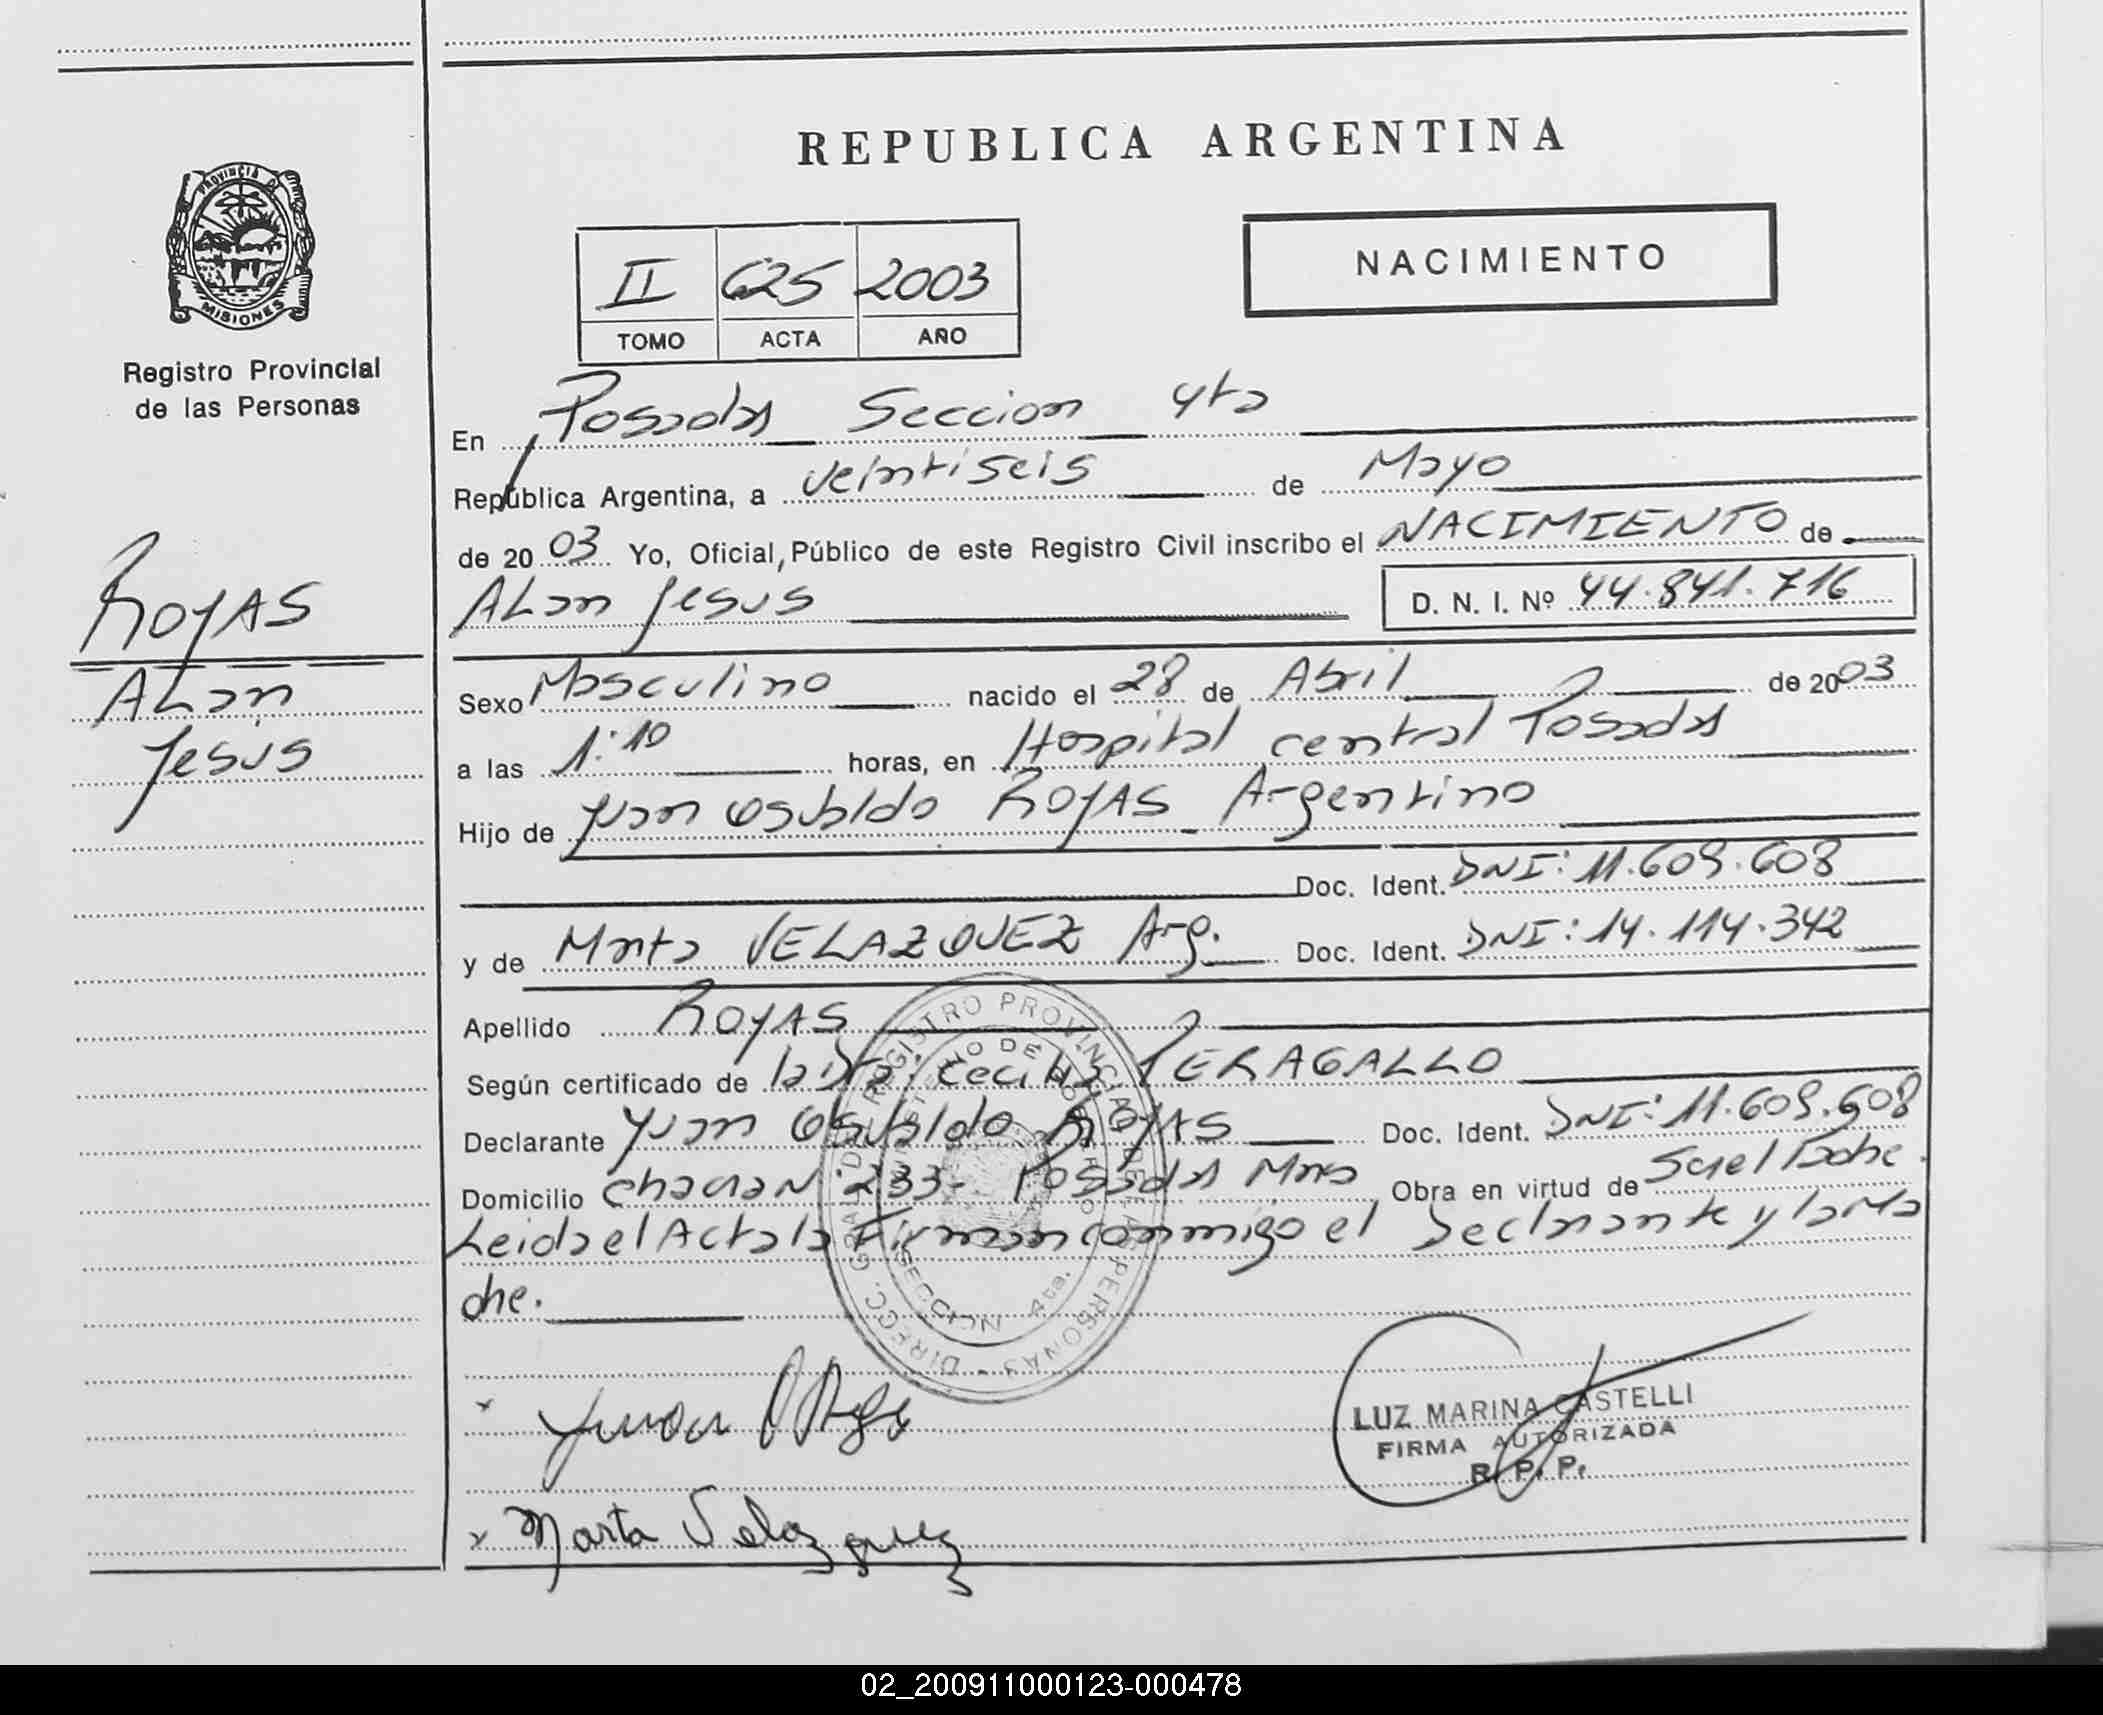 REPUBLICA ARGENTINA
PROVINCIA DE
MISIONES
Registro Provincial
de las Personas
NACIMIENTO
II 625 2003
TOMO ACTA AÑO
ROJAS
ALan
Jesús
En Posadas Seccion 4ta
República Argentina, a veintiseis de Mayo
de 2003 Yo, Oficial Público de este Registro Civil inscribo el NACIMIENTO de
ALan Jesus D. N. I. Nº 44.841.716
Sexo Masculino nacido el 28 de Abril de 2003
a las 1:10 horas, en Hospital central Posadas
Hijo de Juan Osvaldo ROJAS Argentino
Doc. Ident. DNI: 11.609.608
y de Marta VELAZQUEZ Arg. Doc. Ident. DNI: 14.114.342
Apellido ROJAS
Según certificado de la Dra. Cecilia PERAGALLO
Declarante Juan Osvaldo ROJAS Doc. Ident. DNI: 11.609.608
Domicilio 233- Posadas Mnes Obra en virtud de
Leida el Acta la Firman conmigo el Declarante y la Ma
dre.
DIRECC. GRAL. DEL REGISTRO PROVINCIAL DE LAS PERSONAS
MINISTERIO DE GOBIERNO
SECCION 4ta.
Juan
Marta Velazquez
LUZ MARINA CASTELLI
FIRMA AUTORIZADA
R. P. P.
02_200911000123-000478